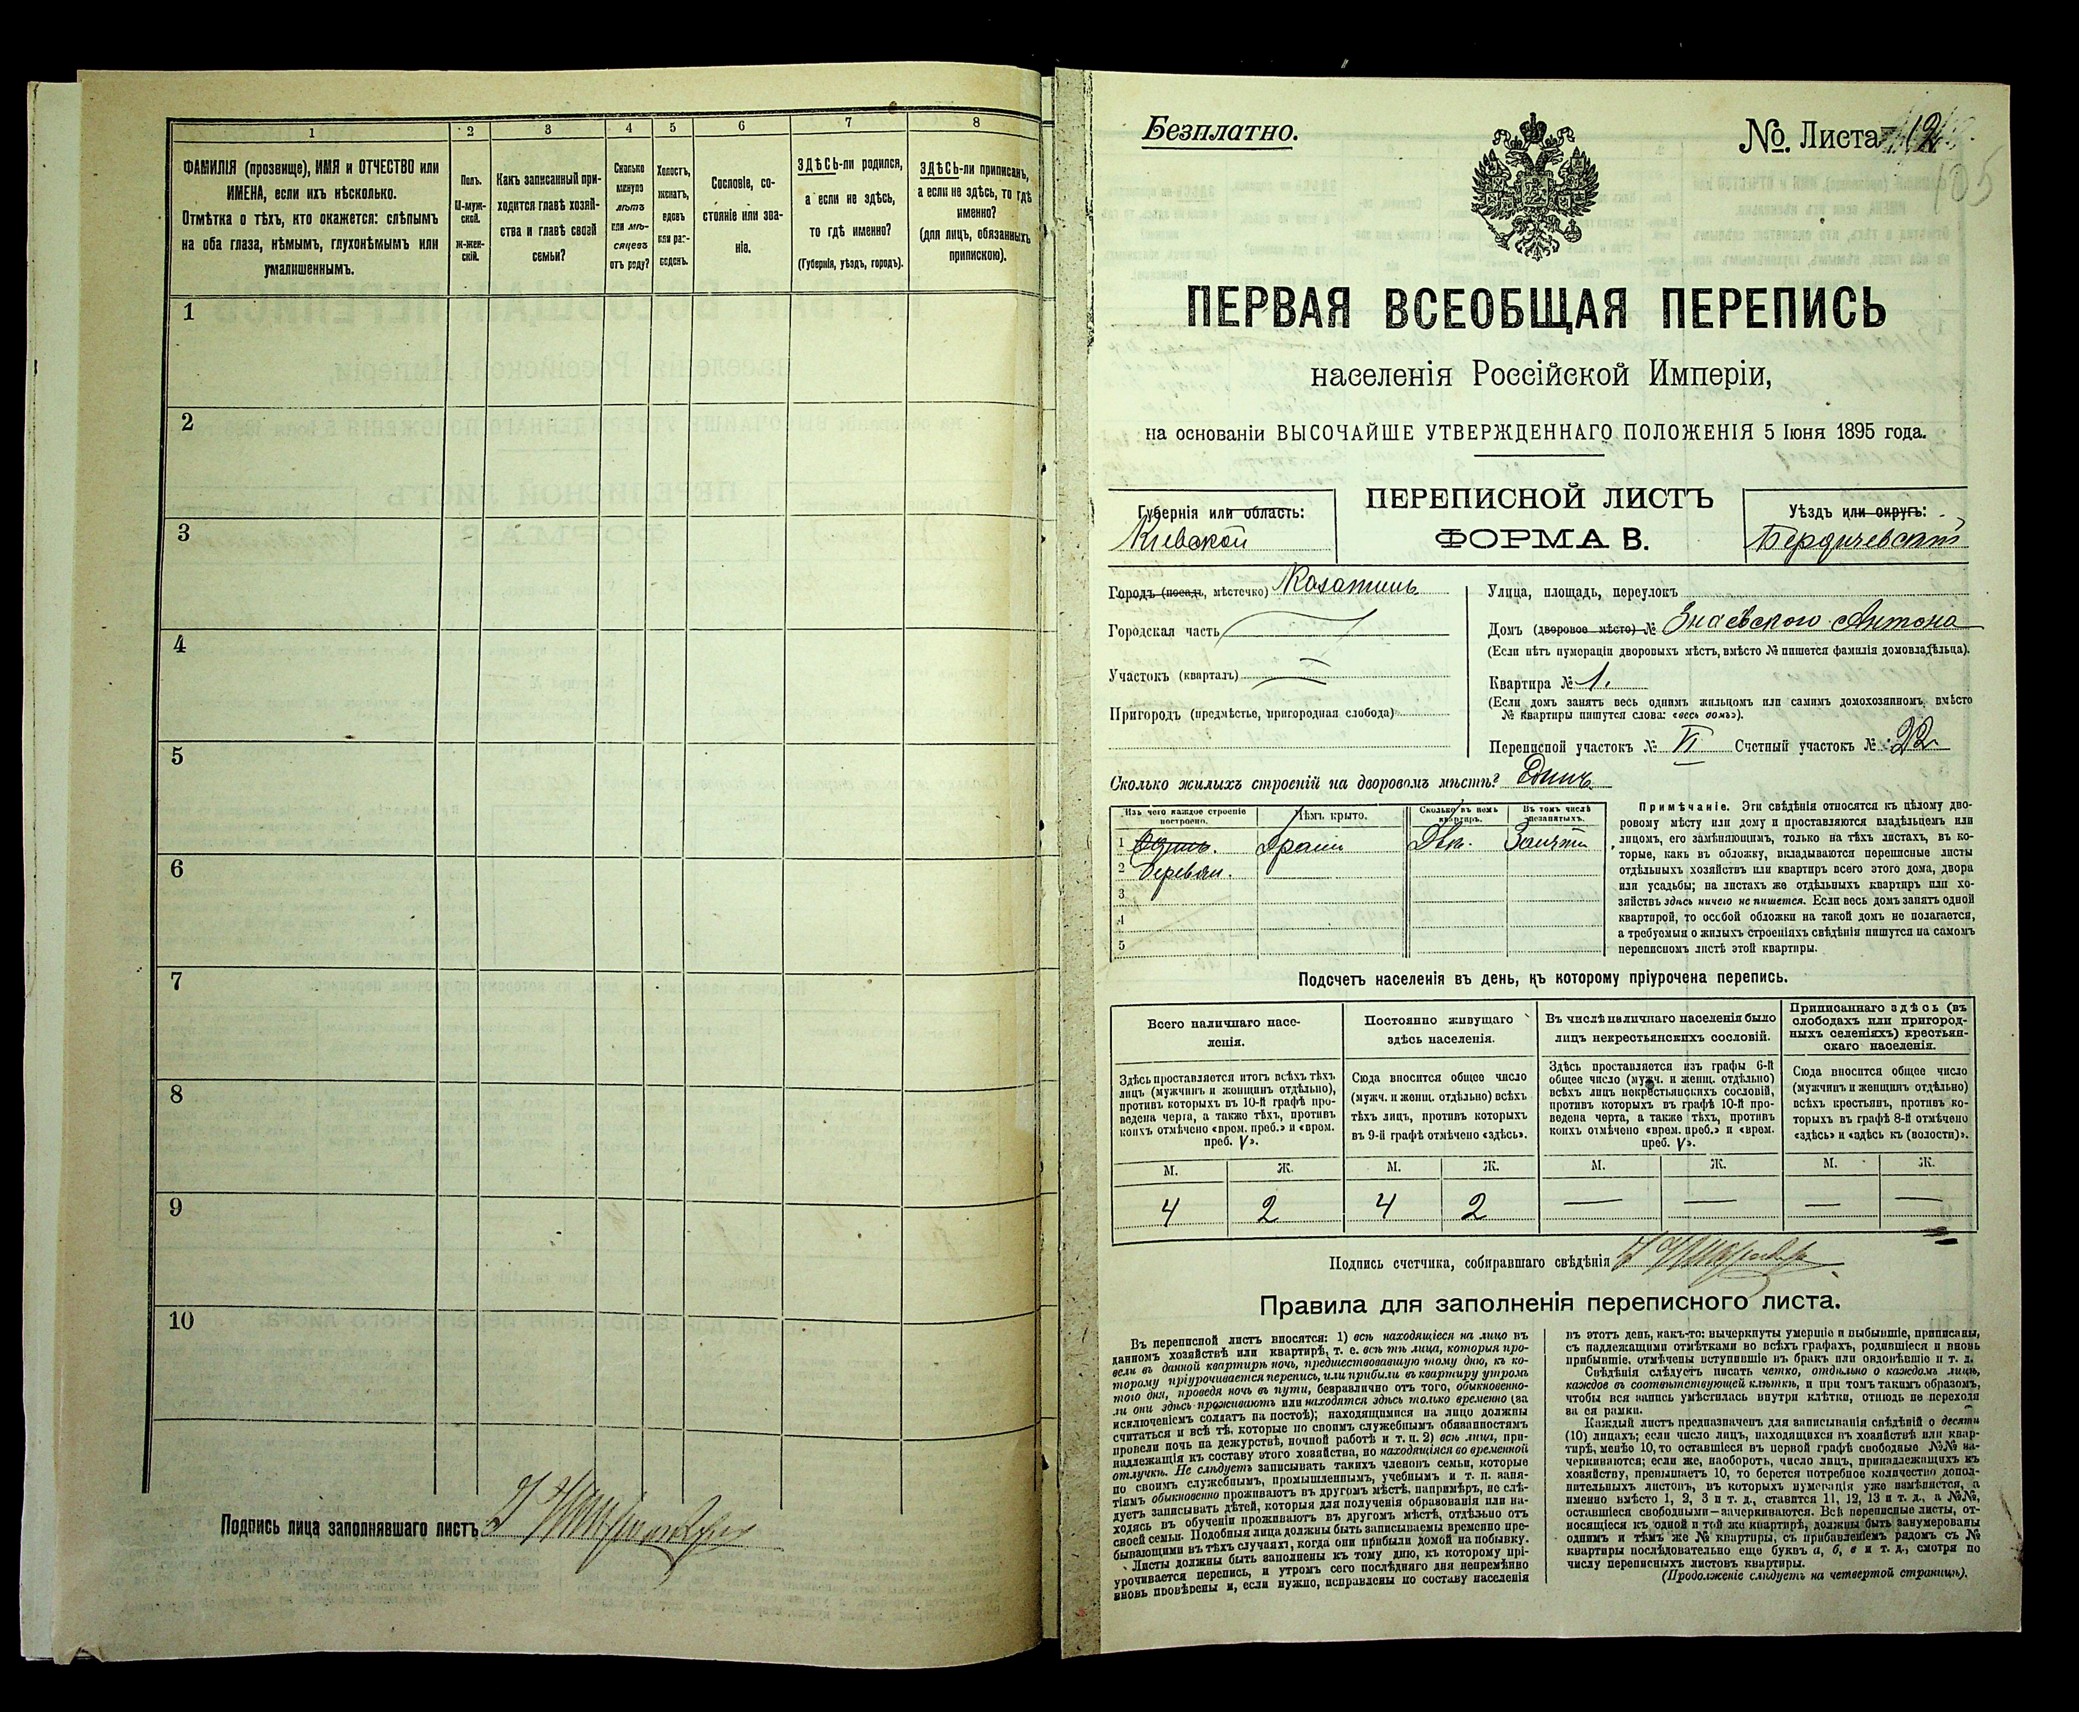 1
2
3
4
5
6
7
8
ФАМИЛІЯ (прозвище), ИМЯ и ОТЧЕСТВО или
ИМЕНА, если ихъ нѣсколько.
Отмѣтка о тѣхъ, кто окажется: слѣпымъ
на оба глаза, нѣмымъ, глухонѣмымъ или
умалишеннымъ.
Полъ.
М-муж-
ской.
ж-жен-
скій.
Какъ записанный при-
ходится главѣ хозяй-
ства и главѣ своей
семьи?
Сколько
минуло
лѣтъ
или мѣ-
сяцевъ
отъ роду?
Холостъ,
женатъ,
вдовъ
или раз-
веденъ.
Сословіе, со-
стояніе или зва-
ніе.
ЗДѢСЬ-ли родился,
а если не здѣсь,
то гдѣ именно?
(Губернія, уѣздъ, городъ).
ЗДѢСЬ-ли приписанъ,
а если не здѣсь, то гдѣ
именно?
(для лицъ, обязанныхъ
припискою).
1
2
3
4
5
6
7
8
9
10
Подпись лица заполнявшаго листъ
Безплатно.
№ Листа
105
ПЕРВАЯ ВСЕОБЩАЯ ПЕРЕПИСЬ
населенія Россійской Имперіи,
на основаніи ВЫСОЧАЙШЕ УТВЕРЖДЕННАГО ПОЛОЖЕНІЯ 5 Іюня 1895 года.
Губернія или область:
Кіевской
ПЕРЕПИСНОЙ ЛИСТЪ
ФОРМА В.
Уѣздъ или округъ:
Бердичевскій
Городъ (посадъ, мѣстечко) Козатинъ
Городская часть
Участокъ (кварталъ)
Пригородъ (предмѣстье, пригородная слобода)
Улица, площадь, переулокъ
Домъ (дворовое мѣсто) № Знаевского Антона
(Если нѣтъ нумераціи дворовыхъ мѣстъ, вмѣсто № пишется фамилія домовладѣльца).
Квартира № 1.
(Если домъ занятъ весь однимъ жильцомъ или самимъ домохозяиномъ, вмѣсто
№ квартиры пишутся слова: «весь домъ»).
Переписной участокъ № VI Счетный участокъ № 22
Сколько жилыхъ строеній на дворовомъ мѣстѣ? Одинъ
Изъ чего каждое строеніе
построено.
Чѣмъ крыто.
Сколько въ немъ
квартиръ.
Въ томъ числѣ
незанятыхъ.
1 Одинъ. Драни Двѣ. Заняты
2 Деревян.
3
4
5
Примѣчаніе. Эти свѣдѣнія относятся къ цѣлому дво-
ровому мѣсту или дому и проставляются владѣльцемъ или
лицомъ, его замѣняющимъ, только на тѣхъ листахъ, въ ко-
торые, какъ въ обложку, вкладываются переписные листы
отдѣльныхъ хозяйствъ или квартиръ всего этого дома, двора
или усадьбы; на листахъ же отдѣльныхъ квартиръ или хо-
зяйствъ здѣсь ничего не пишется. Если весь домъ занятъ одной
квартирой, то особой обложки на такой домъ не полагается,
а требуемыя о жилыхъ строеніяхъ свѣдѣнія пишутся на самомъ
переписномъ листѣ этой квартиры.
Подсчетъ населенія въ день, къ которому пріурочена перепись.
Всего наличнаго насе-
ленія.
Постоянно живущаго
здѣсь населенія.
Въ числѣ наличнаго населенія было
лицъ некрестьянскихъ сословій.
Приписаннаго здѣсь (въ
слободахъ или пригород-
ныхъ селеніяхъ) крестьян-
скаго населенія.
Здѣсь проставляется итогъ всѣхъ тѣхъ
лицъ (мужчинъ и женщинъ отдѣльно),
противъ которыхъ въ 10-й графѣ про-
ведена черта, а также тѣхъ, противъ
коихъ отмѣчено «врем. преб.» и «врем.
преб. V».
Сюда вносится общее число
(мужч. и женщ. отдѣльно) всѣхъ
тѣхъ лицъ, противъ которыхъ
въ 9-й графѣ отмѣчено «здѣсь».
Здѣсь проставляется изъ графы 6-й
общее число (мужч. и женщ. отдѣльно)
всѣхъ лицъ некрестьянскихъ сословій,
противъ которыхъ въ графѣ 10-й про-
ведена черта, а также тѣхъ, противъ
коихъ отмѣчено «врем. преб.» и «врем.
преб. V».
Сюда вносится общее число
(мужчинъ и женщинъ отдѣльно)
всѣхъ крестьянъ, противъ ко-
торыхъ въ графѣ 8-й отмѣчено
«здѣсь» и «здѣсь къ (волости)».
М. Ж. М. Ж. М. Ж. М. Ж.
4 2 4 2 — — — —
Подпись счетчика, собиравшаго свѣдѣнія
Правила для заполненія переписного листа.
Въ переписной листъ вносятся: 1) всѣ находящіеся на лицо въ
данномъ хозяйствѣ или квартирѣ, т. е. всѣ тѣ лица, которыя про-
вели въ данной квартирѣ ночь, предшествовавшую тому дню, къ ко-
торому пріурочивается перепись, или прибыли въ квартиру утромъ
того дня, проведя ночь въ пути, безразлично отъ того, обыкновенно-
ли они здѣсь проживаютъ или находятся здѣсь только временно (за
исключеніемъ солдатъ на постоѣ); находящимися на лицо должны
считаться и всѣ тѣ, которые по своимъ служебнымъ обязанностямъ
провели ночь на дежурствѣ, ночной работѣ и т. п. 2) всѣ лица, при-
надлежащія къ составу этого хозяйства, но находящіяся во временной
отлучкѣ. Не слѣдуетъ записывать такихъ членовъ семьи, которые
по своимъ служебнымъ, промышленнымъ, учебнымъ и т. п. заня-
тіямъ обыкновенно проживаютъ въ другомъ мѣстѣ, напримѣръ, не слѣ-
дуетъ записывать дѣтей, которыя для полученія образованія или на-
ходясь въ обученіи проживаютъ въ другомъ мѣстѣ, отдѣльно отъ
своей семьи. Подобныя лица должны быть записываемы временно пре-
бывающими въ тѣхъ случаяхъ, когда они прибыли домой на побывку.
Листы должны быть заполнены къ тому дню, къ которому прі-
урочивается перепись, и утромъ сего послѣдняго дня непремѣнно
вновь провѣрены и, если нужно, исправлены по составу населенія
въ этотъ день, какъ-то: вычеркнуты умершіе и выбывшіе, приписаны,
съ надлежащими отмѣтками во всѣхъ графахъ, родившіеся и вновь
прибывшіе, отмѣчены вступившіе въ бракъ или овдовѣвшіе и т. д.
Свѣдѣнія слѣдуетъ писать четко, отдѣльно о каждомъ лицѣ,
каждое въ соотвѣтствующей клѣткѣ, и при томъ такимъ образомъ,
чтобы вся запись умѣстилась внутри клѣтки, отнюдь не переходя
за ея рамки.
Каждый листъ предназначенъ для записыванія свѣдѣній о десяти
(10) лицахъ; если число лицъ, находящихся въ хозяйствѣ или квар-
тирѣ, менѣе 10, то оставшіеся въ первой графѣ свободные №№ за-
черкиваются; если же, наоборотъ, число лицъ, принадлежащихъ къ
хозяйству, превышаетъ 10, то берется потребное количество допол-
нительныхъ листовъ, въ которыхъ нумерація уже измѣняется, а
именно вмѣсто 1, 2, 3 и т. д., ставится 11, 12, 13 и т. д., а №№,
оставшіеся свободными—зачеркиваются. Всѣ переписные листы, от-
носящіеся къ одной и той же квартирѣ, должны быть занумерованы
однимъ и тѣмъ же № квартиры, съ прибавленіемъ рядомъ съ №
квартиры послѣдовательно еще буквъ а, б, в и т. д., смотря по
числу переписныхъ листовъ квартиры.
(Продолженіе слѣдуетъ на четвертой страницѣ).